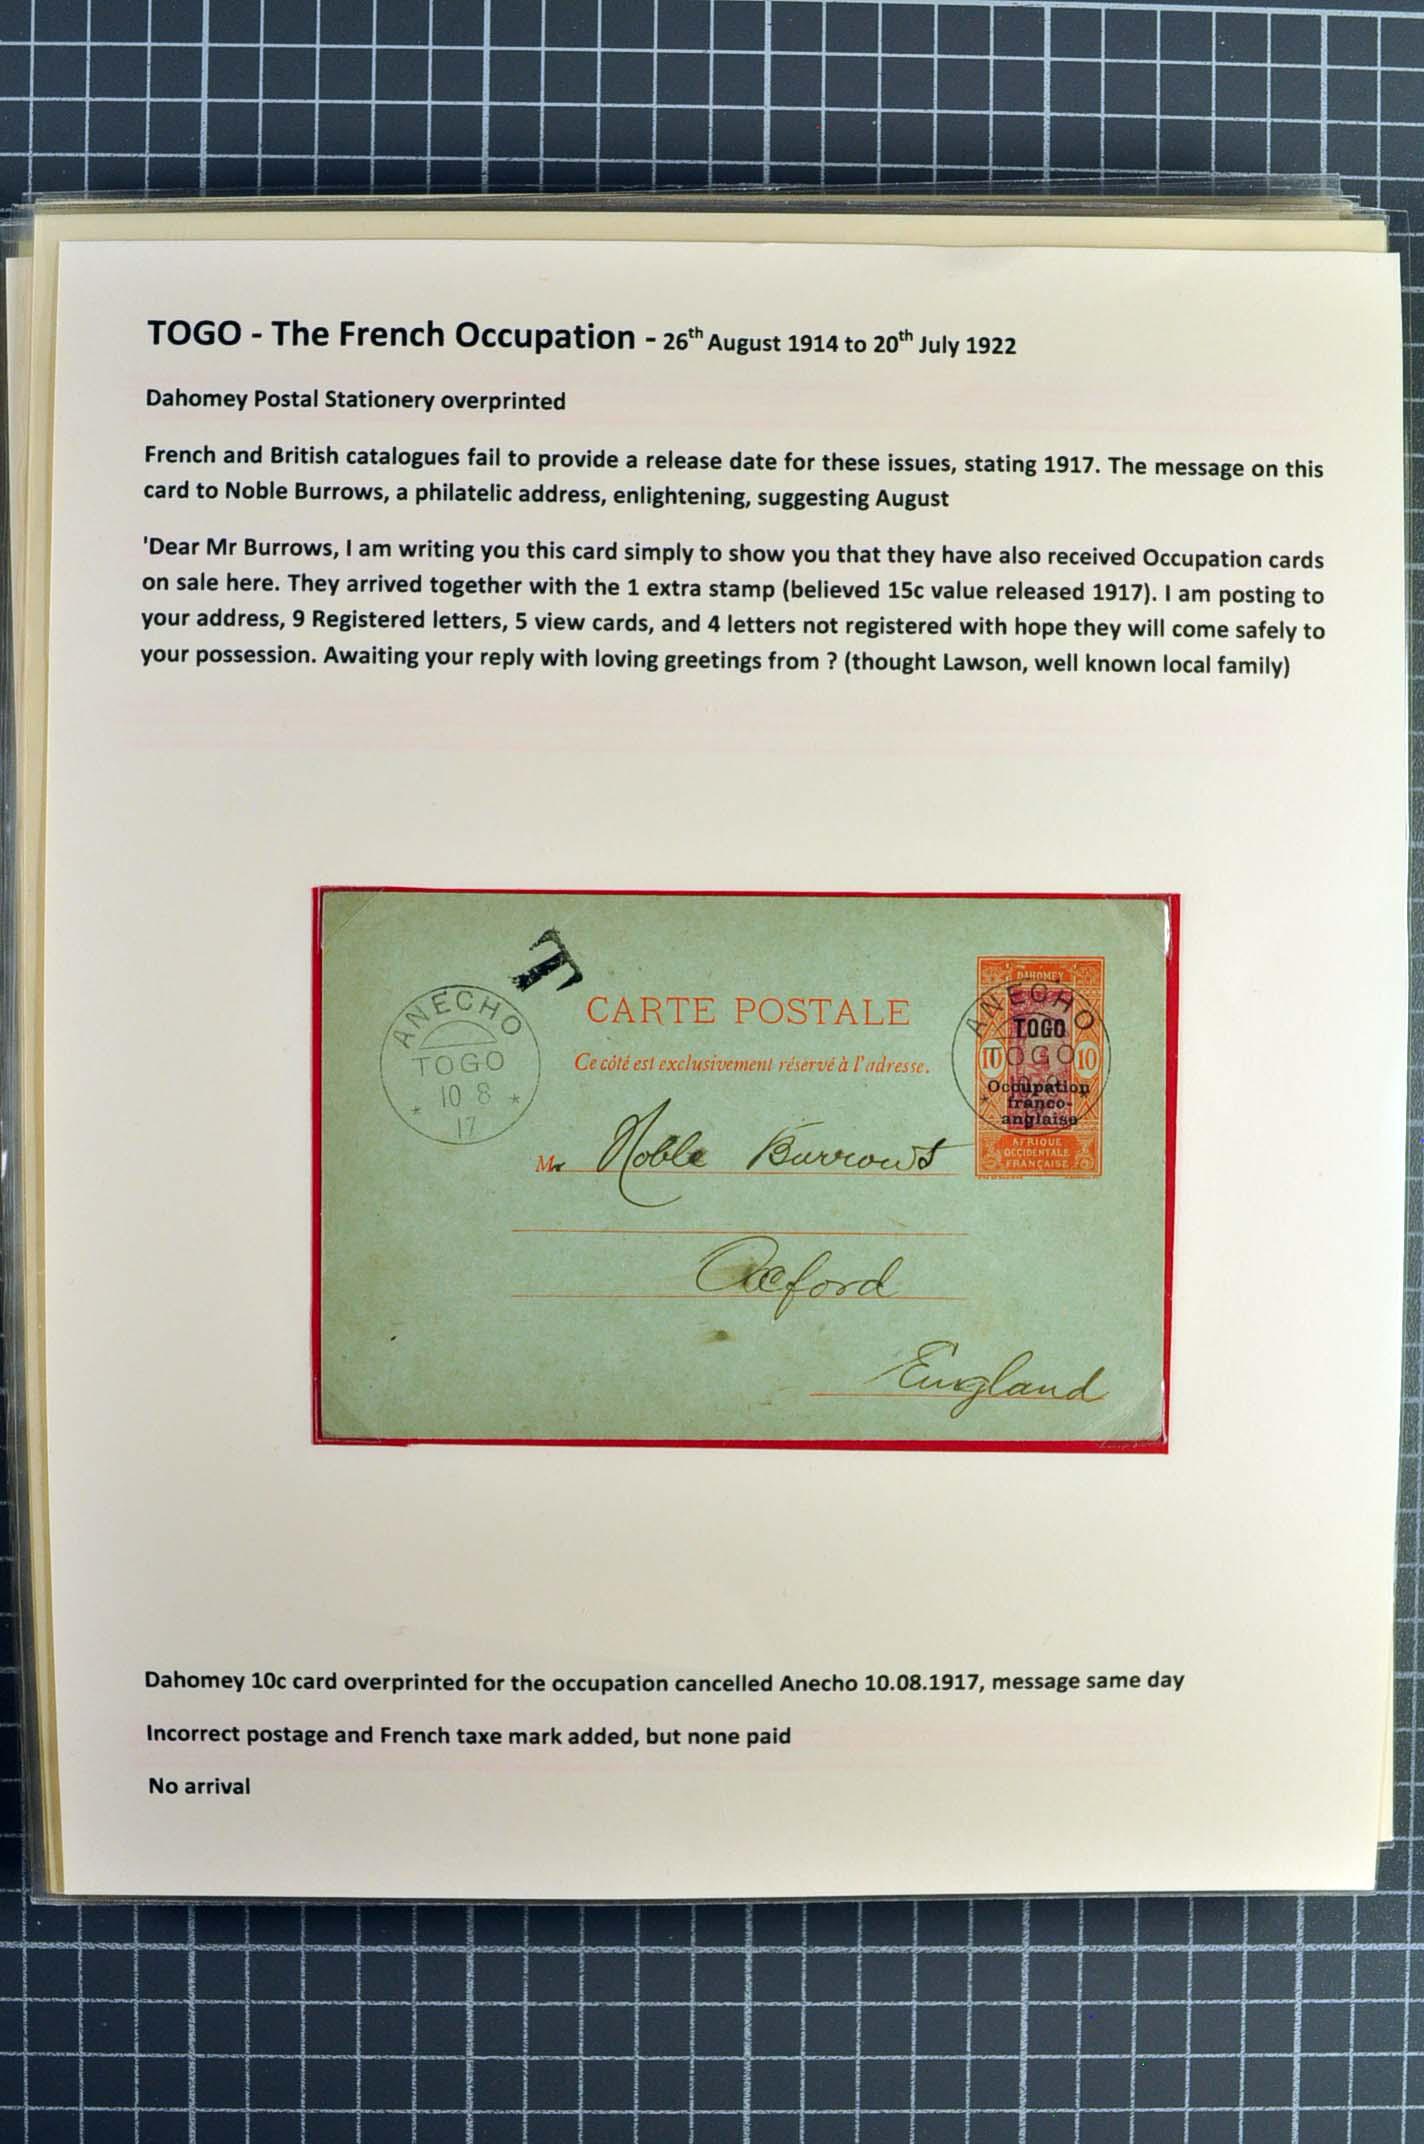 TOGO - The French Occupation - 26th August 1914 to 20th July 1922
Dahomey Postal Stationery overprinted
French and British catalogues fail to provide a release date for these issues, stating 1917. The message on this
card to Noble Burrows, a philatelic address, enlightening, suggesting August
'Dear Mr Burrows, I am writing you this card simply to show you that they have also received Occupation cards
on sale here. They arrived together with the 1 extra stamp (believed 15c value released 1917). I am posting to
your address, 9 Registered letters, 5 view cards, and 4 letters not registered with hope they will come safely to
your possession. Awaiting your reply with loving greetings from ? (thought Lawson, well known local family)
T
ANECHO
TOGO
10 8
* *
17
CARTE POSTALE
Ce côté est exclusivement réservé à l'adresse.
Mr Noble Burrows
Oxford
England
DAHOMEY
ANECHO
TOGO
10 TOGO 10
Occupation
franco-
anglaise
AFRIQUE
OCCIDENTALE
FRANÇAISE
Dahomey 10c card overprinted for the occupation cancelled Anecho 10.08.1917, message same day
Incorrect postage and French taxe mark added, but none paid
No arrival